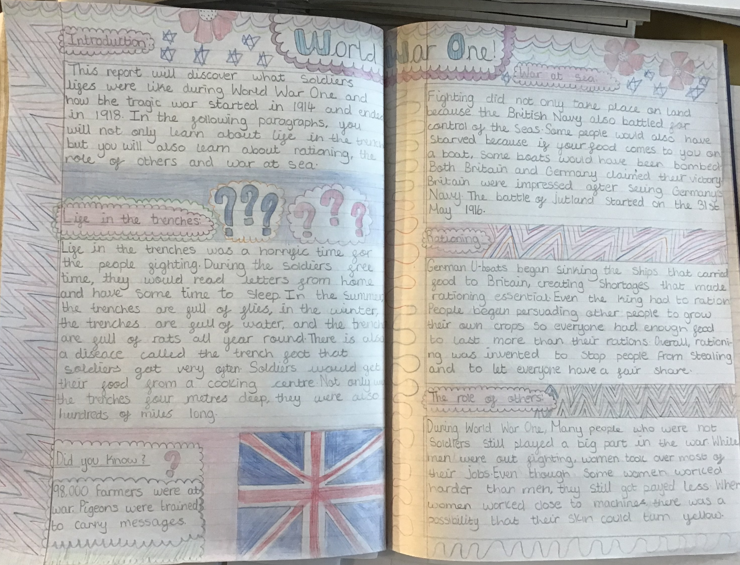 World War One!
Introduction
This report will discover what soldiers
lifes were like during World War One and
how the tragic war started in 1914 and ended
in 1918. In the following paragraphs, you
will not only learn about life in the trenches
but you will also learn about rationing, the
role of others and war at sea.
???
???
Life in the trenches
Life in the trenches was a horrific time for
the people fighting. During the soldiers free
time, they would read letters from home
and have some time to sleep. In the summer
the trenches are full of flies, in the winter,
the trenches are full of water, and the trenches
are full of rats all year round. There is also
a diseace called the trench foot that
soldiers got very often. Soldiers would get
their food from a cooking centre. Not only were
the trenches four metres deep, they were also
hundreds of miles long.
Did you know?
?
98,000 farmers were at
war. Pigeons were trained
to carry messages.
War at sea
Fighting did not only take place on land
because the British Navy also battled for
control of the seas. Some people would also have
starved because if your food comes to you on
a boat, some boats would have been bombed.
Both Britain and Germany claimed their victory.
Britain were impressed after seeing Germanys
Navy. The battle of Jutland started on the 31st
May 1916.
Rationing
German U-boats began sinking the ships that carried
food to Britain, creating shortages that made
rationing essential. Even the King had to ration.
People began persuading other people to grow
their own crops so everyone had enough food
to last more than their rations. Overall, rationi-
ng was invented to stop people from stealing
and to let everyone have a fair share.
The role of others
During World War One, Many people who were not
soldiers still played a big part in the war. While
men were out fighting, women took over most of
their jobs. Even though some women worked
harder than men, they still got payed less. When
women worked close to machines there was a
possibility that their skin could turn yellow.